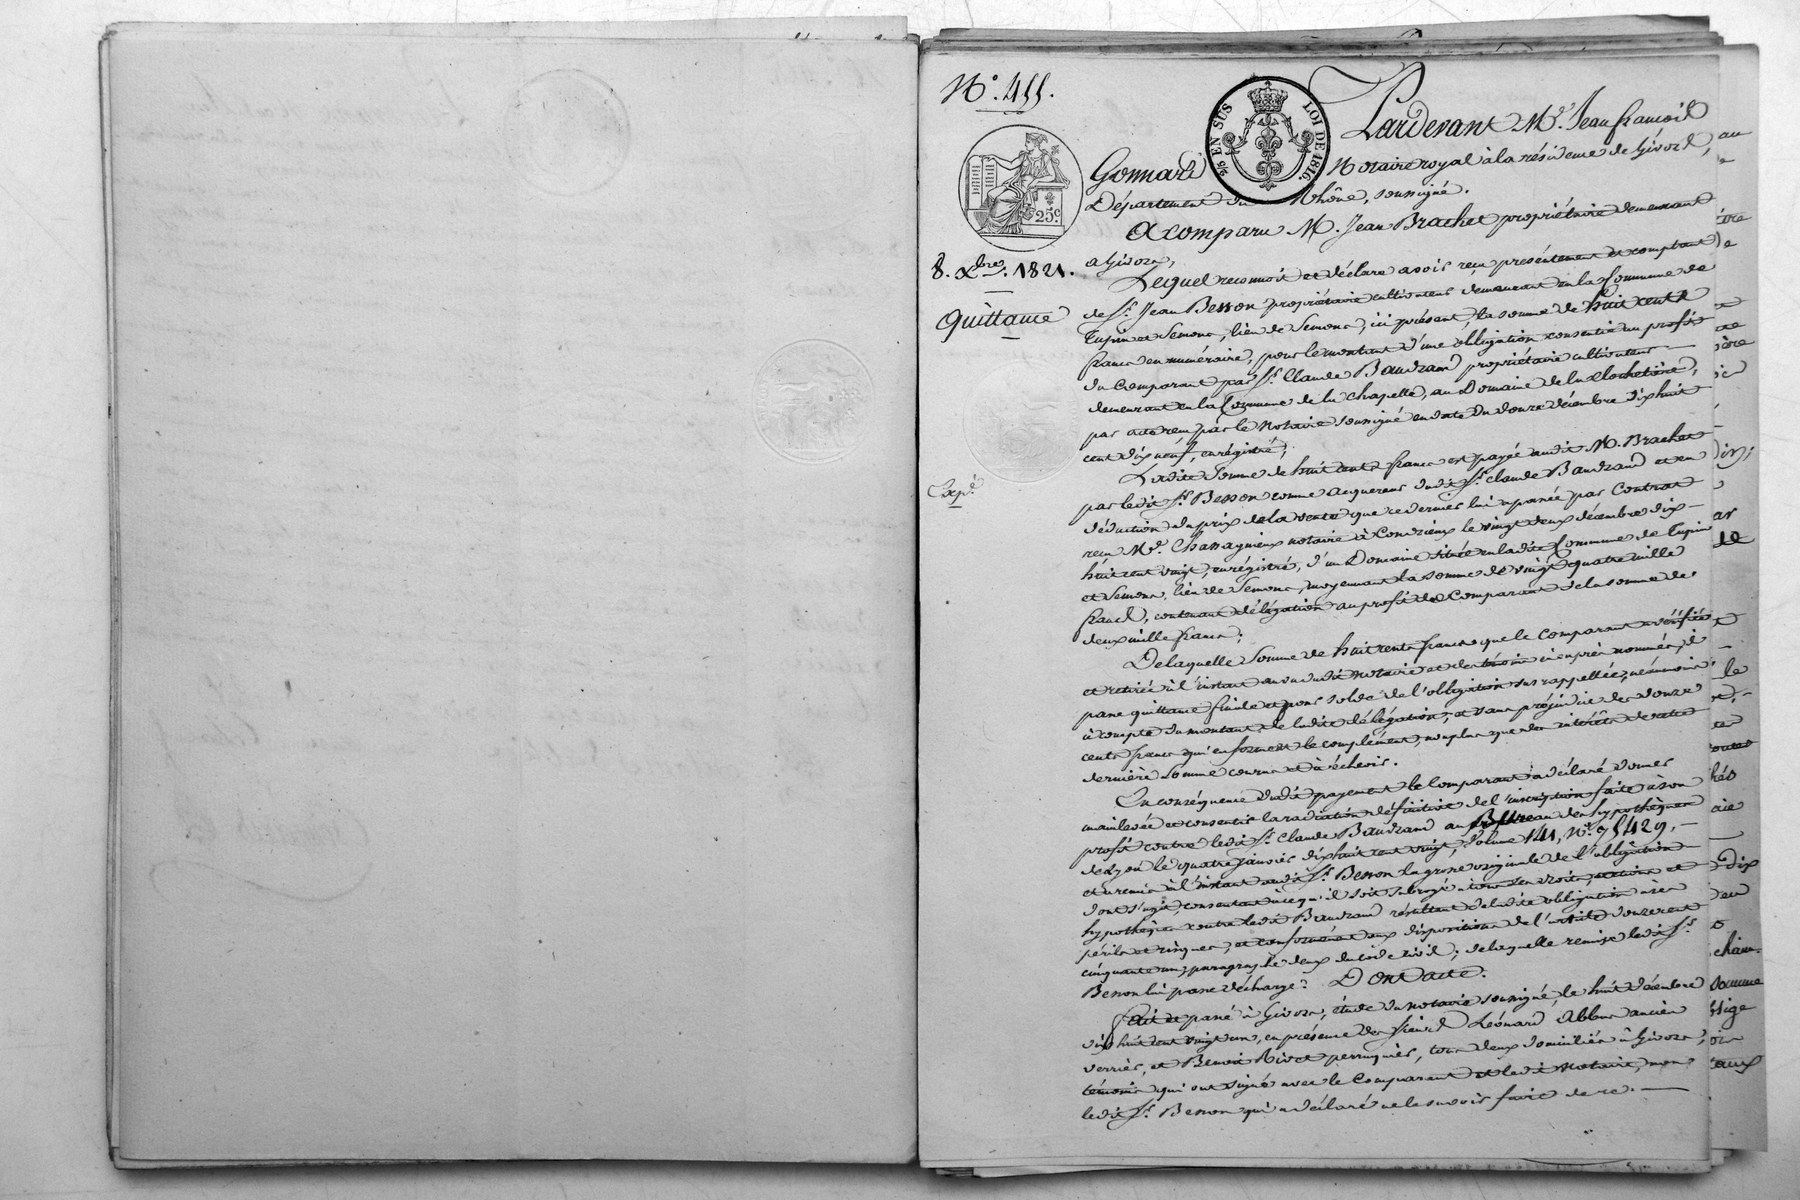 N.° 455.
2/5 EN SUS LOI DE 1816.
25c.
8. Xbre. 1821.
Quittance
Expé
Pardevant Me. Jean françois
Gonnard Notaire royal à la résidence de Givors,
Département du Rhône, soussigné.
A comparu M. Jean Brachet propriétaire demeurant
à Givors,
Lequel reconnoit et déclare avoir reçu présentement et comptant
de Sr. Jean Besson propriétaire cultivateur demeurant en la Commune de
Tupin et Semons, lieu de Semons, ici présent, la somme de huit cents
francs en numéraire, pour le montant d'une obligation consentie au profit
du Comparant par Sr. Claude Baudrand propriétaire cultivateur
demeurant en la Commune de la Chapelle, au Domaine de la
par acte reçu par le Notaire soussigné en date du douze décembre dix huit
cent dix neuf, enrégistré;
Ladite somme de huit cents francs est payée audit M. Brachet
par ledit Sr. Besson comme acquereur dudit Sr. Claude Baudrand et en
déduction du prix de la vente que ce dernier lui a passée par Contrat
reçu Me. Chassagnieux notaire à Condrieux le vingt deux décembre dix-
huit cent vingt, enrégistré, d'un Domaine situé en ladite Commune de Tupin
et Semons, lieu de Semons, moyennant la somme de vingt quatre mille
francs, contenant délégation au profit du Comparant de la somme de
deux mille francs;
De laquelle somme de huit cents francs que le Comparant a vérifiée
et retirée à l'instant au vu dudit notaire et des témoins ci après nommés, il
passe quittance finale et pour solde de l'obligation sus rappellée, néanmoins
à compte du montant de ladite délégation, et sans préjudice des douze
cents francs qui en forment le complément, non plus que des intérêts de cette
dernière somme courus et à échoir.
En conséquence dudit payement le Comparant a déclaré donner
mainlevée et consentir la radiation définitive de l'inscription faite à son
profit contre ledit Sr. Claude Baudrand au Bureau des hypothèques
de Lyon le quatre janvier dix huit cent vingt, Volume 141, N.°
et a remis à l'instant audit Sr. Besson la grosse originale de l'obligation
dont s'agit, consentant à ce qu'il soit subrogé à tous ses droits, actions et
hypothèques contre ledit Baudrand résultant de ladite obligation à ses
périls et risques, et conformément aux dispositions de l'article douze cent
cinquante un, paragraphe deux du code civil; de laquelle remise ledit Sr.
Besson lui passe décharge. Dont Acte.
Fait et passé à Givors, étude du notaire soussigné, le huit décembre
dix huit cent vingt un, en présence des sieurs Léonard ancien
verrier, et Benoit Rivet perruquier, tous deux domiciliés à Givors,
témoins qui ont signé avec le Comparant et ledit Notaire, non
ledit Sr. Besson qui a déclaré ne le savoir faire de ce